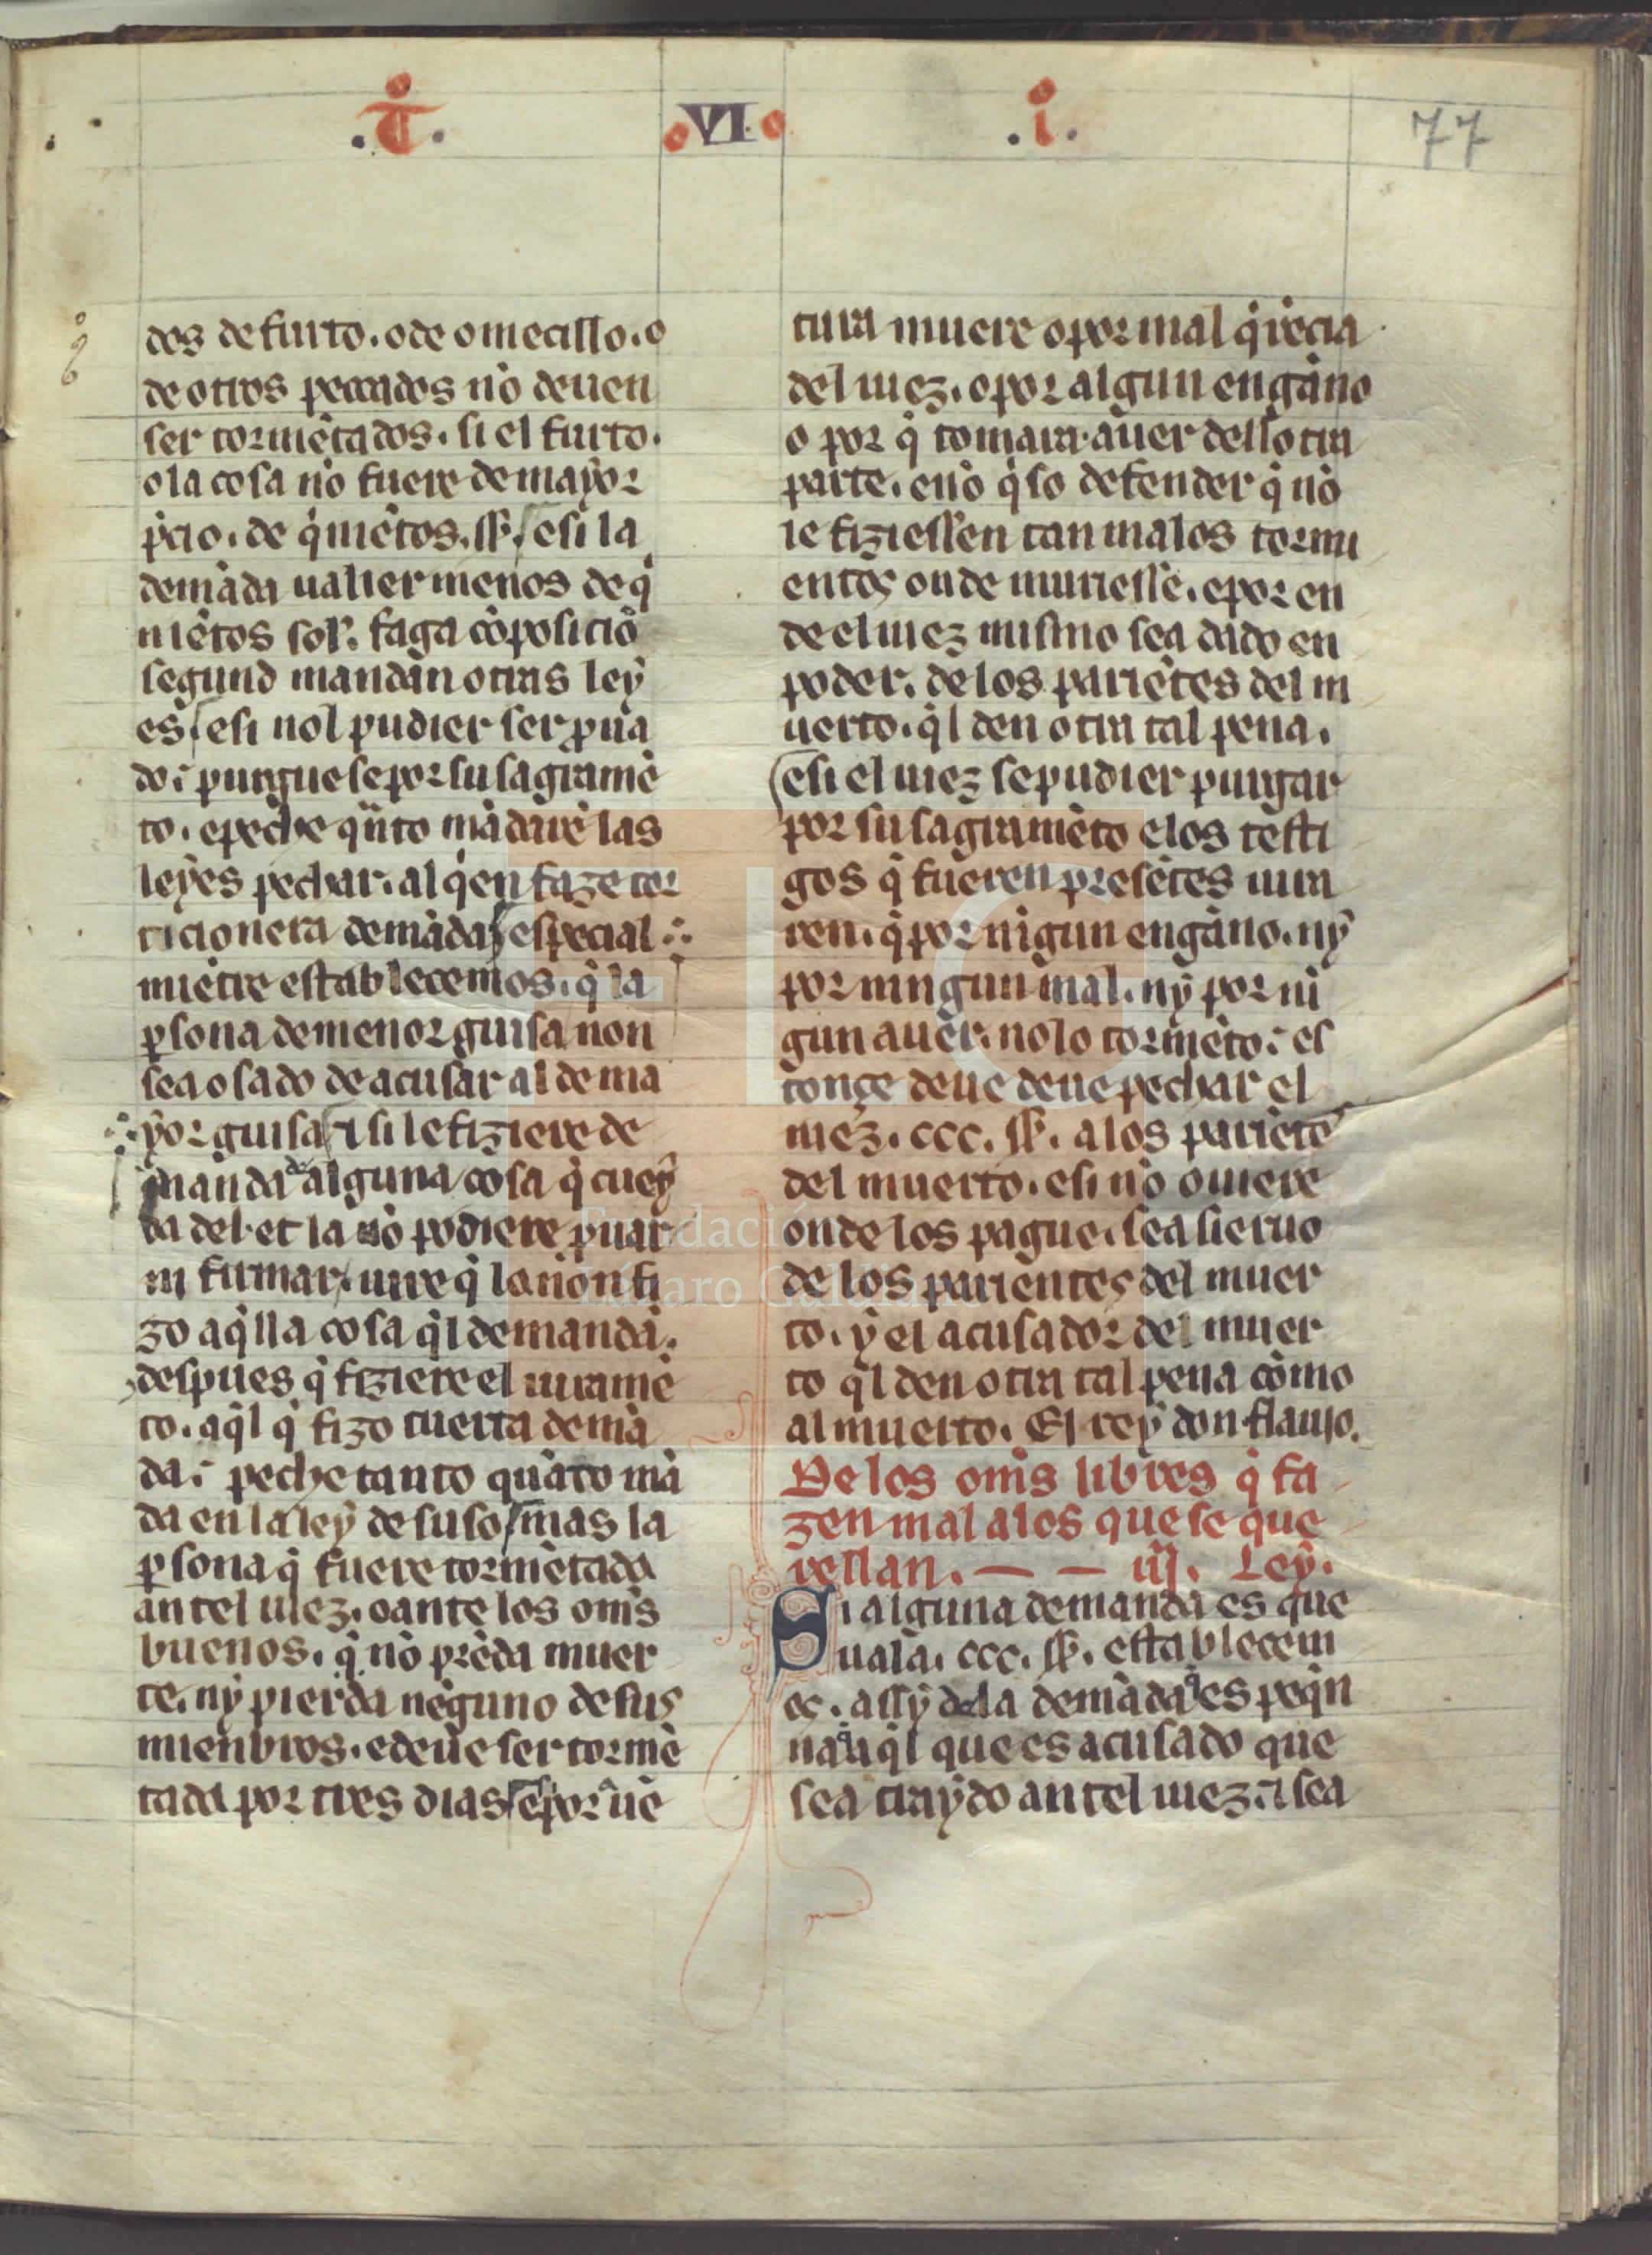 .T. VI .i. 77
dos de furto. o de omecillo. o
de otros peccados nõ deuen
ser tormẽtados. si el furto.
o la cosa nõ fuere de mayor
p̃cio. de q̃niẽtos. sł. e si la
demãda ualier menos de q̃
niẽtos sol̃. faga cõposiciõ
segund mandan otras ley
es e si nol pudier ser ꝓua
do: purgue se por su sagramẽ
to. e peche q̃nto mãdarẽ las
leyes pechar. al q̃en faze tor
ticionera demãda especial
miẽtre establecemos. q̃ la
ꝑsona de menor guisa non
sea osado de acusar al de ma
yor guisa ⁊ si le fiziere de
manda de alguna cosa q̃ cuey
da del. et la nõ podiere ꝓuar
ni firmar. iure q̃ lo non fi
zo aq̃lla cosa q̃l demanda.
despues q̃ fiziere el iuramẽ
to. aq̃l q̃ fizo tuerta demã
da: peche tanto quãto mã
da en la ley de suso mas la
ꝑsona q̃ fuere tormẽtada
antel iuez. o ante los om̃s
buenos. q̃ nõ prẽda muer
te. ny pierda neguno de sus
mienbros. e deue ser tormẽ
tada por tres dias e por uẽ
tura muere o por mal q̃rẽcia
del iuez. o por algun engãno
o por q̃ tomara auer dell otra
parte. e nõ q̃so defender q̃ nõ
le fiziessen tan malos tormi
entos onde muriesse. e por en
de el iuez mismo sea dado en
poder. de los pariẽtes del m
uerto. q̃l den otra tal pena.
e si el iuez se pudier purgar
por su sagramẽto e los testi
gos q̃ fueren presẽtes iura
ren. q̃ por nĩgun engãno. ny
por ningun mal. ny por nĩ
gun auer. no lo tormẽto: es
tonçe deue deue pechar el
iuez. ccc. sł. a los pariẽte
del muerto. e si nõ ouiere
onde los pague. sea sieruo
de los parientes del muer
to. y el acusador del muer
to q̃l den otra tal pena como
al muerto. El rey don flauio.
De los om̃s libres q̃ fa
zen mal a los que se que
rellan. — — iij. Ley.
Si alguna demanda es que
uala. ccc. sł. establecem
os. assy de la demãda es peq̃n
na aq̃l que es acusado que
sea traydo antel iuez. ⁊ sea
Fundación
Lázaro Galdiano